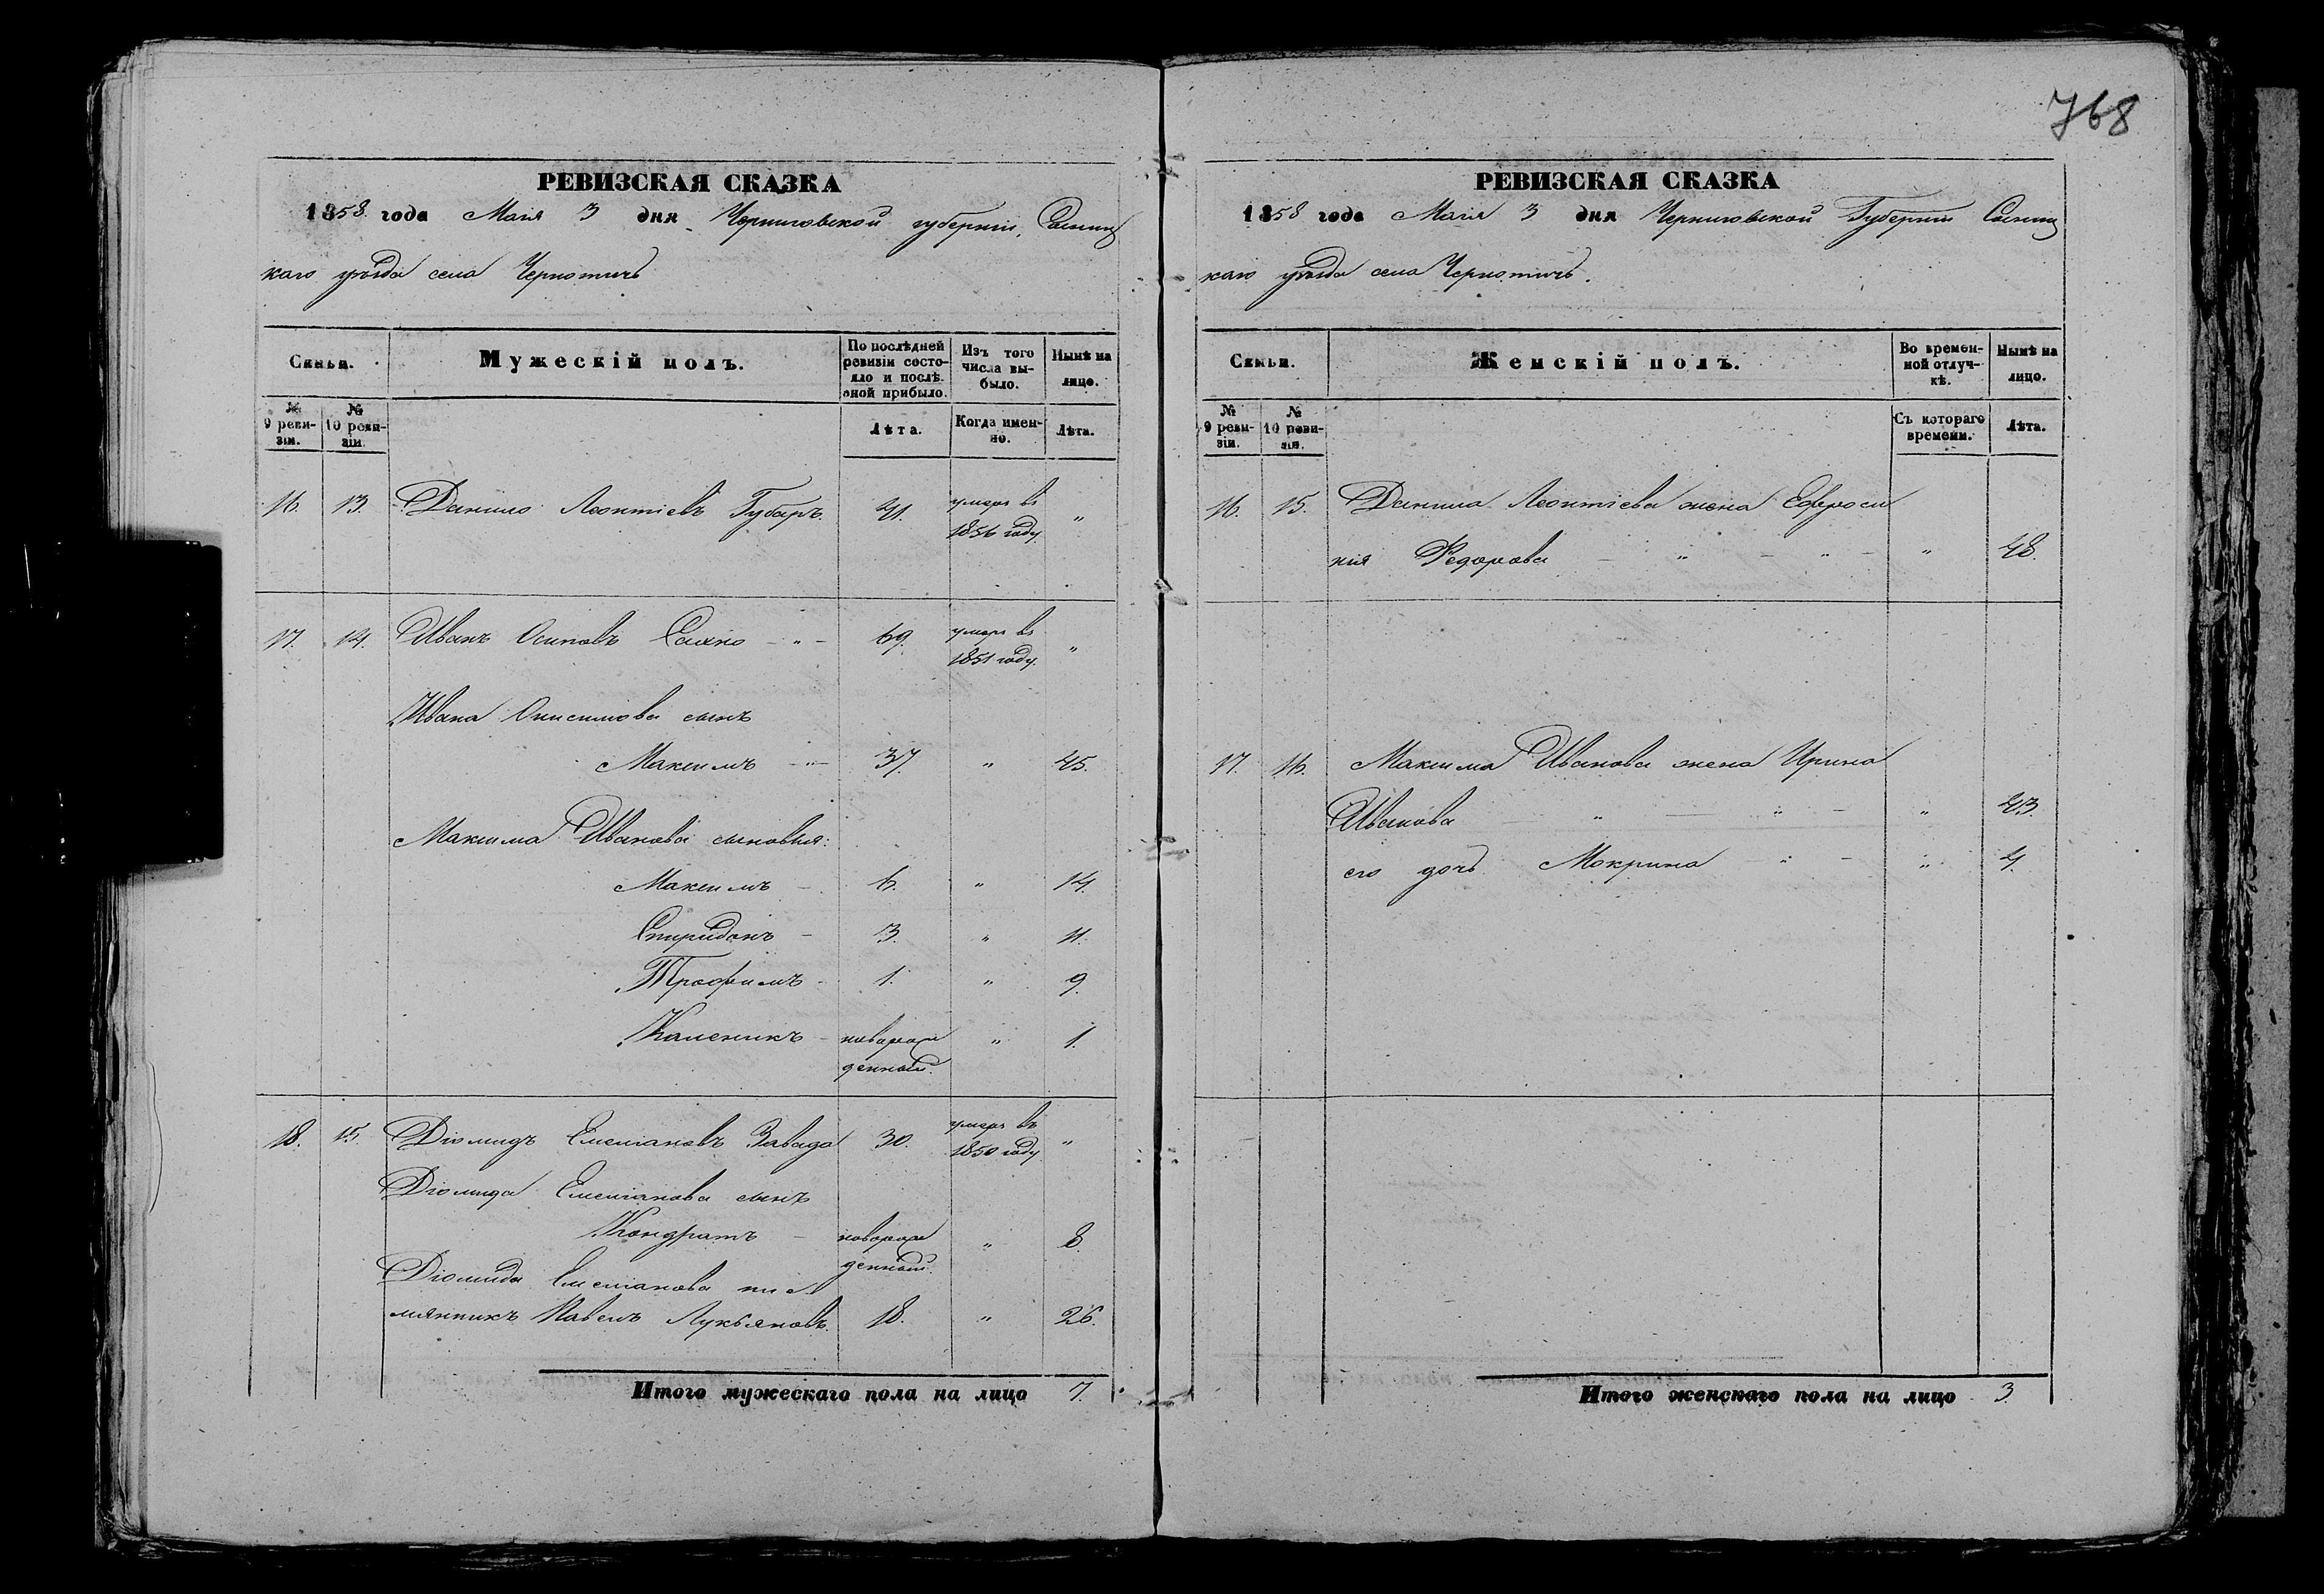 768
РЕВИЗСКАЯ СКАЗКА
1858 года Маія 3 дня Черниговской губерніи, Сосниц
каго уѣзда села Чернотичъ
Симьи.
Мужескій полъ.
По послѣдней ревизіи состояло и послѣ оной прибыло.
Изъ того числа выбыло.
Нынѣ на лицо.
№ 9 ревизіи.
№ 10 ревизіи.
Лѣта.
Когда именно.
Лѣта.
16. 13. Данило Леонтіевъ Губаръ. 41. умеръ въ 1856 году "
17. 14. Иванъ Осиповъ - " - 69. умеръ въ 1851 году. "
Ивана Онисимова сынъ
Максимъ - " - 37. " 45.
Максима Иванова сыновья:
Максимъ - 6. " 14.
Спиридонъ - 3. " 11.
Трофимъ - 1. " 9.
Каленикъ - новорож денный. " 1.
18. 15. Діомидъ Емеліановъ Завада 30. умеръ въ 1850 году "
Діомида Емеліанова сынъ
Кондратъ - новорож денный. " 8.
Діомида Емеліанова пле
мянникъ Павелъ Лукьяновъ. 18. " 26.
Итого мужескаго пола на лицо 7.
РЕВИЗСКАЯ СКАЗКА
1858 года Маія 3 дня Черниговской Губерніи Сосниц
каго уѣзда села Чернотичъ.
Симьи.
Женскій полъ.
Во временной отлучкѣ.
Нынѣ на лицо.
№ 9 ревизіи.
№ 10 ревизіи.
Съ котораго времени.
Лѣта.
16. 15. Данила Леонтіева жена Ефроси
нія Федорова - " - " - " 48.
17. 16. Максима Иванова жена Ирина
Иванова - " - " - " 43.
его дочь Мокрина " - " 4.
Итого женскаго пола на лицо 3